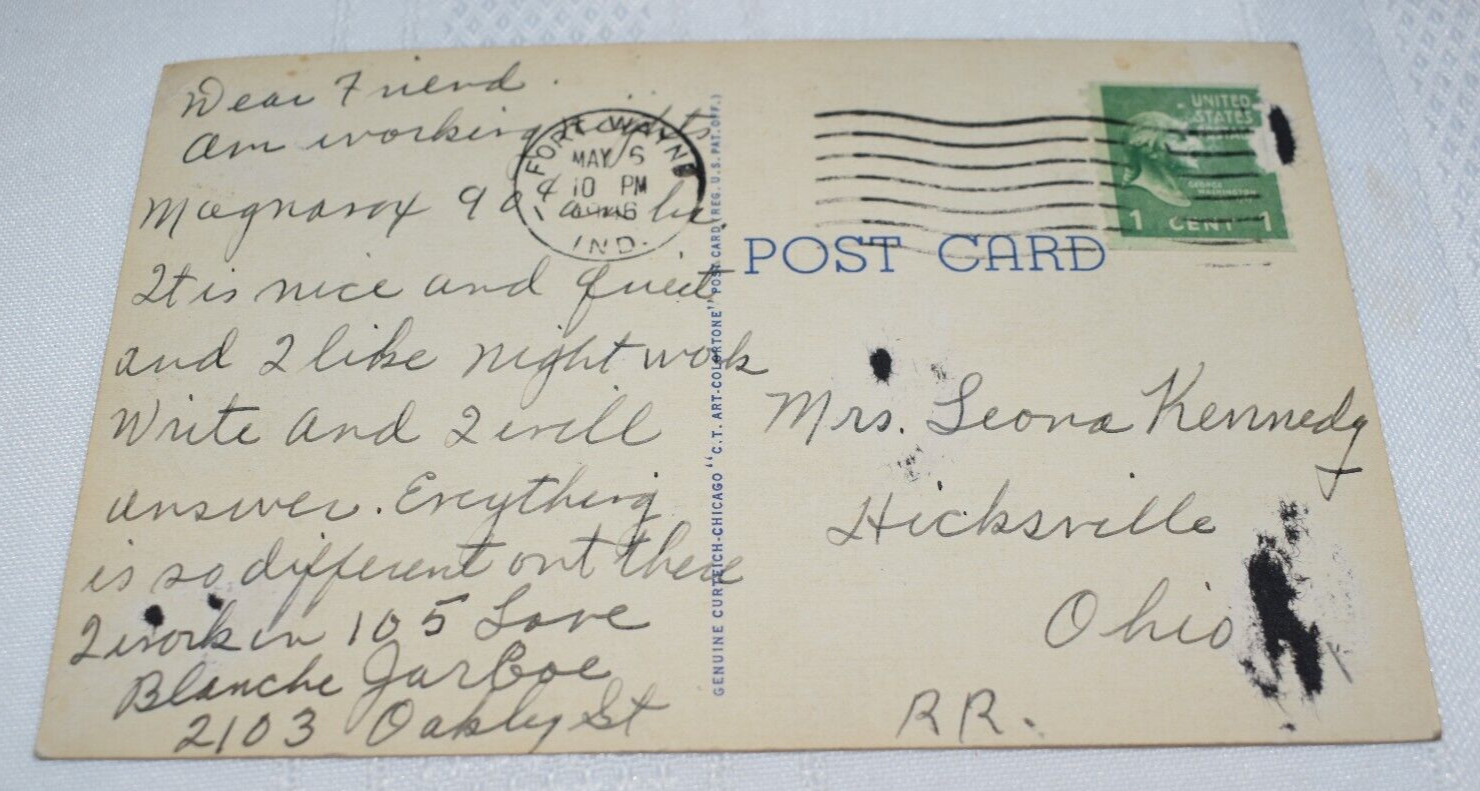 Dear Friend.
Am working nights
Magnavox 90
It is nice and quiet
and I like night work
Write and I will
answer. Ereything
is so different out there
I work in 105 Love
Blanche JarBoe
2103 Oakley St
FORT WAYNE
MAY 6
10 PM
IND.
GENUINE CURTEICH-CHICAGO "C.T. ART-COLORTONE" POST CARD (REG. U.S. PAT. OFF.)
UNITED
STATES
GEORGE
WASHINGTON
1 CENT 1
POST CARD
Mrs. Leona Kennedy
Hicksville
Ohio
RR.